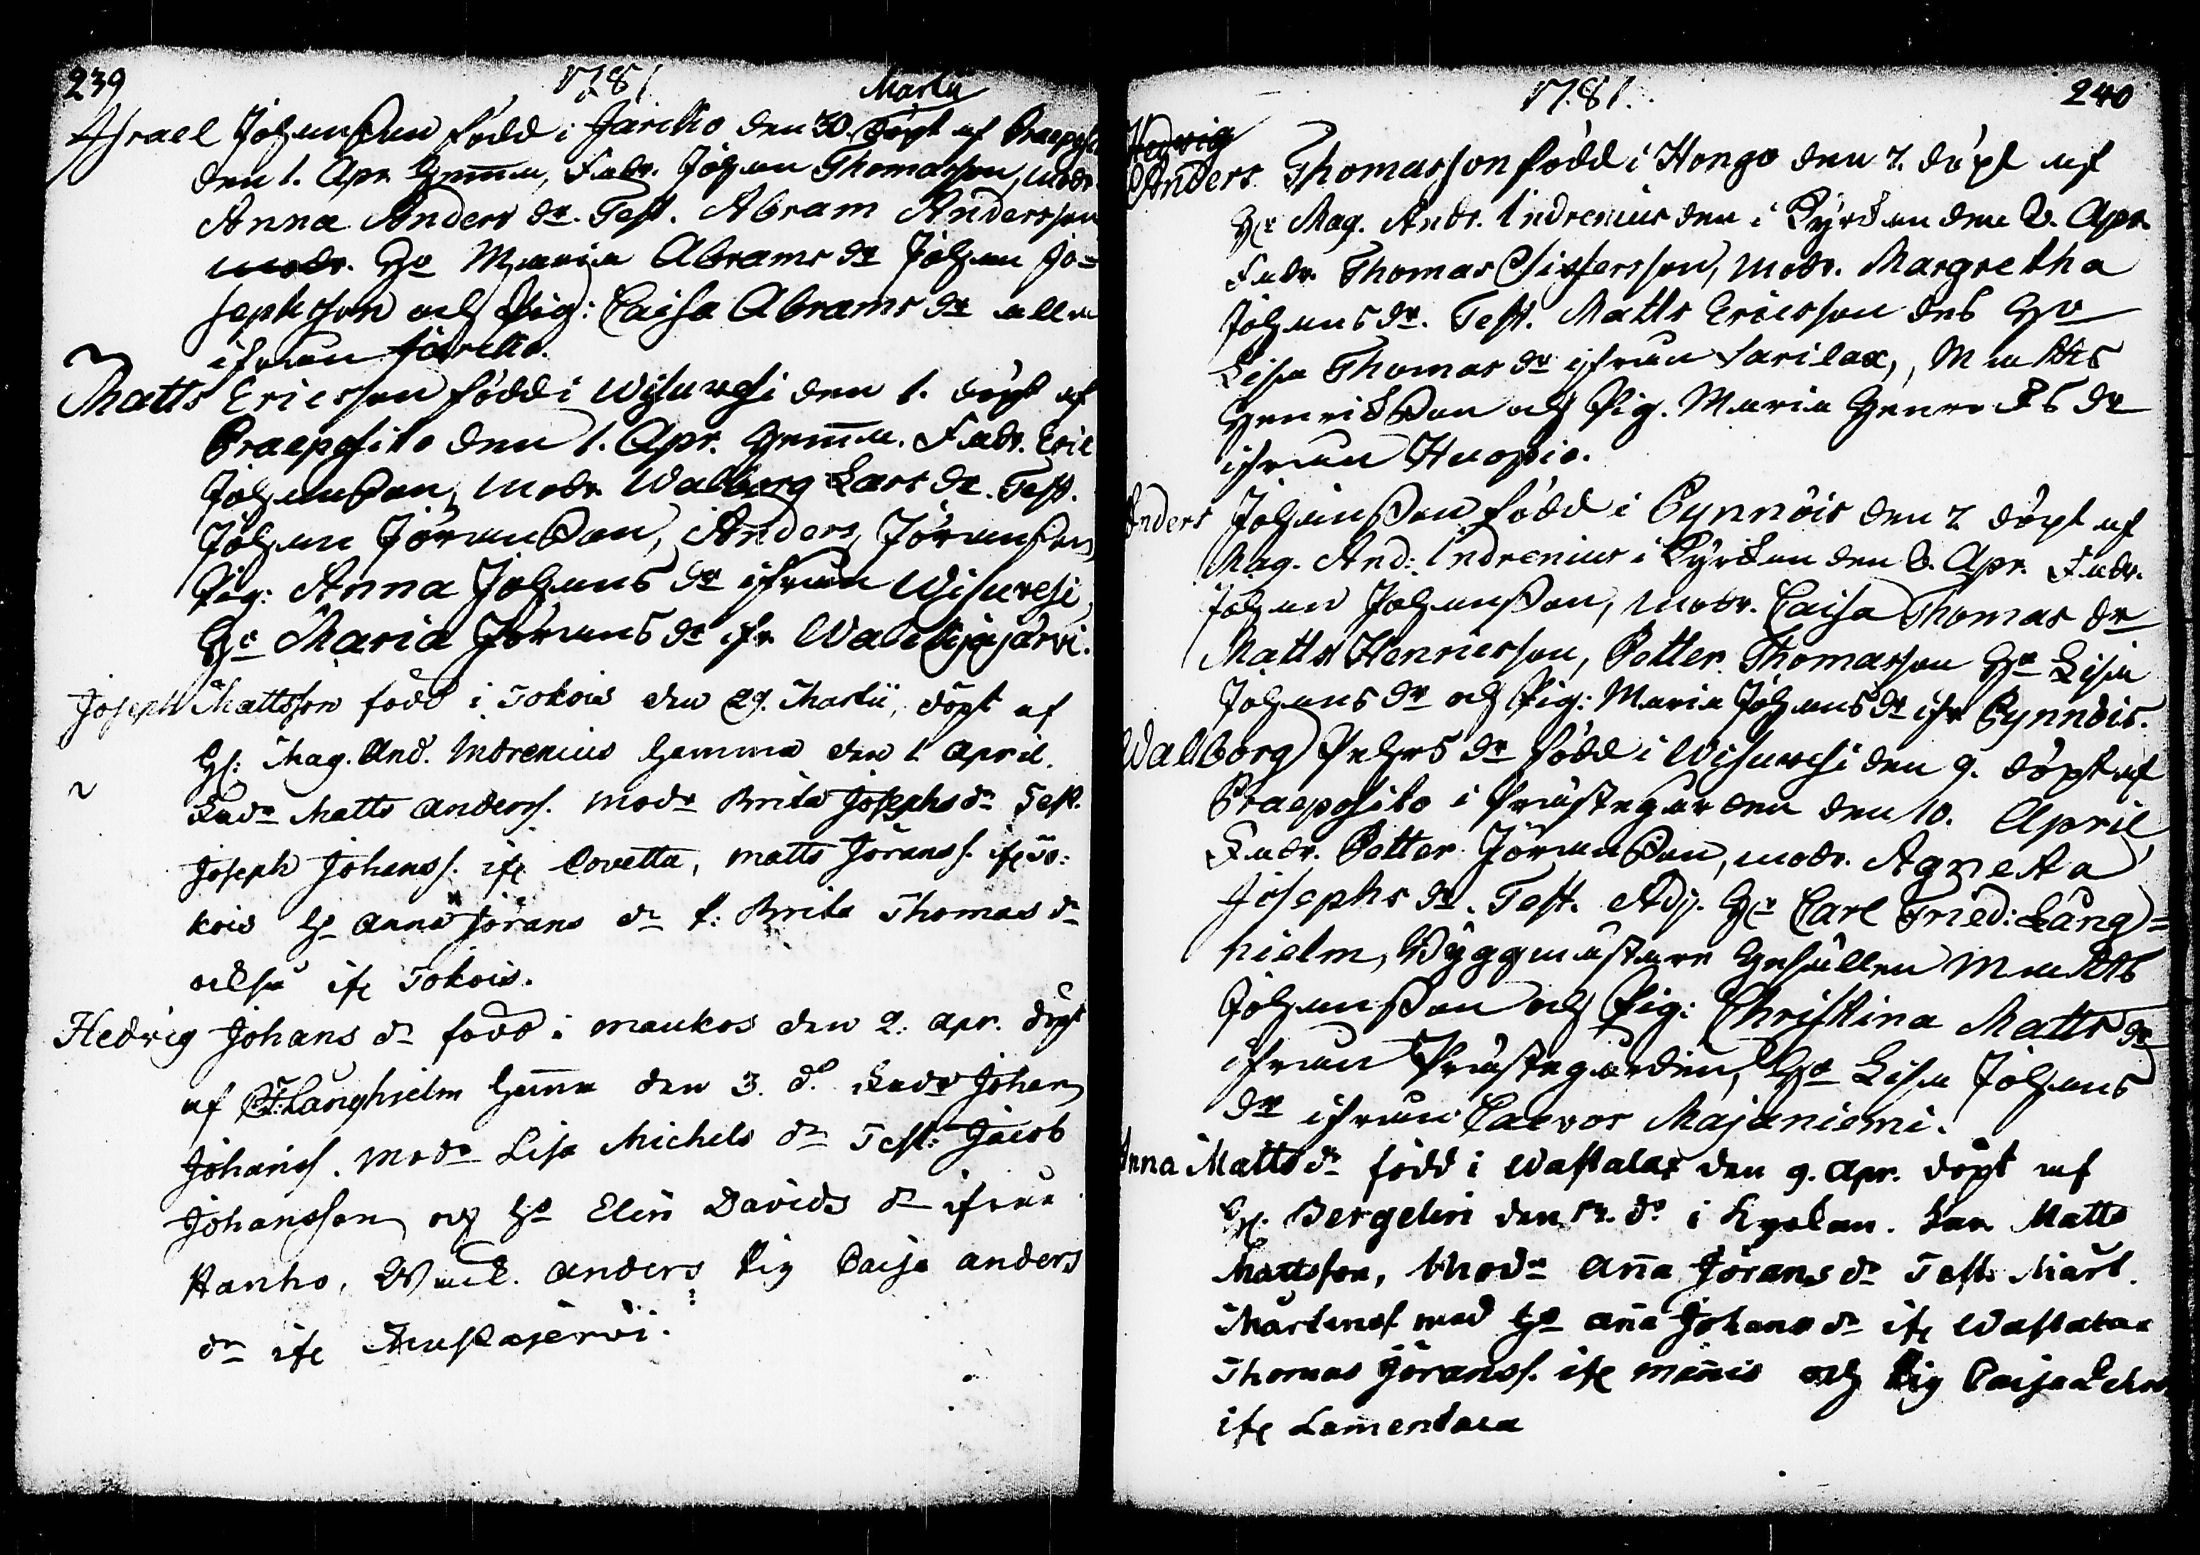 239
1781
Martii
Israel Johansson född i Jarkko den 30. döpt af Praeposito
den 1. Apr. hemma, Fadr. Johan Thomasson, modr.
Anna Anders dr. Test. Abram Andersson
modr. Ho Maria Abrams dr Johan Jo=
sephsson och pig: Caisa Abrams dr alla
ifrån Jarkko.
Matts Ericsson född i Wisuvesi den 1. döpt af
Praeposito den 1. Apr. hemma. Fadr. Eric
Johansson, modr. Walborg Lars dr. Test.
Johan Jöransson, Anders Jöransson,
pig: Anna Johans dr ifrån Wisuvesi,
Ho Maria Jörans dr ifr Walkjärvi.
Joseph Mattsson född i Tokois den 29. Martii, döpt af
H: Mag. And. Indrenius hemma den 1 April.
Fadr Matts Anderss. modr Brita Josephs dr Test.
Joseph Johanss. ifr Covetta, Matts Jöranss. ifr To:
kois Ho Anna Jörans dr p: Brita Thomas dr
också ifr Tokois.
Hedvig Johans dr född i maukos den 2. apr. döpt
af C. F. Långhielm hemma den 3. do. Fadr Johan
Johanss. modr Lisa Michels dr Test: Jacob
Johansson och Ho Elin Davids dr ifrån
Hanho, anders pig Caisa anders
dr ifr
1781.
240
Hedvig
Anders Thomasson född i Hongo den 7. döpt af
Hr Mag. Andr. Indrenius den i Kyrkan den 8. Apr.
Fadr. Thomas modr. Margretha
Johans dr. Test. Matts Ericsson des Ho
Lisa Thomas dr ifrån Sarilax, Matts
Henriksson och pig. Maria Henriks dr
ifrån Huopio.
Anders Johansson född i Pynnöis den 7 döpt af
Mag. And: Indrenius i Kyrkan den 8. Apr. Fadr.
Johan Johansson, modr. Caisa Thomas dr
Matts Henricsson, Petter Thomasson Ho Lisa
Johans dr och pig: Maria Johans dr ifr Pynnöis.
Walborg Pehrs dr född i Wisuvesi den 9. döpt af
Praeposito i Prästegården den 10. April
Fadr. Petter Jöransson, modr. Agneta
Josephs dr. Test. Adj. Hr Carl Fried: Lång=
hielm, Byggmästare Gesällen Matts
Johansson och pig: Christina Matts dr
ifrån Prästegården, Ho Lisa Johans
dr ifrån Caevos Majaniemi.
Anna Matts dr född i Wastalax den 9. Apr. döpt af
H. Bergelin den 12. do i Kyrkan. Far Matts
Mattsson, Modr Anna Jörans dr Test. Mårt.
Mårtenss med Ho Anna Johans dr ifr Wastalax
Thomas Jöranss. ifr männis och pig Caisa
ifr Lamentaca